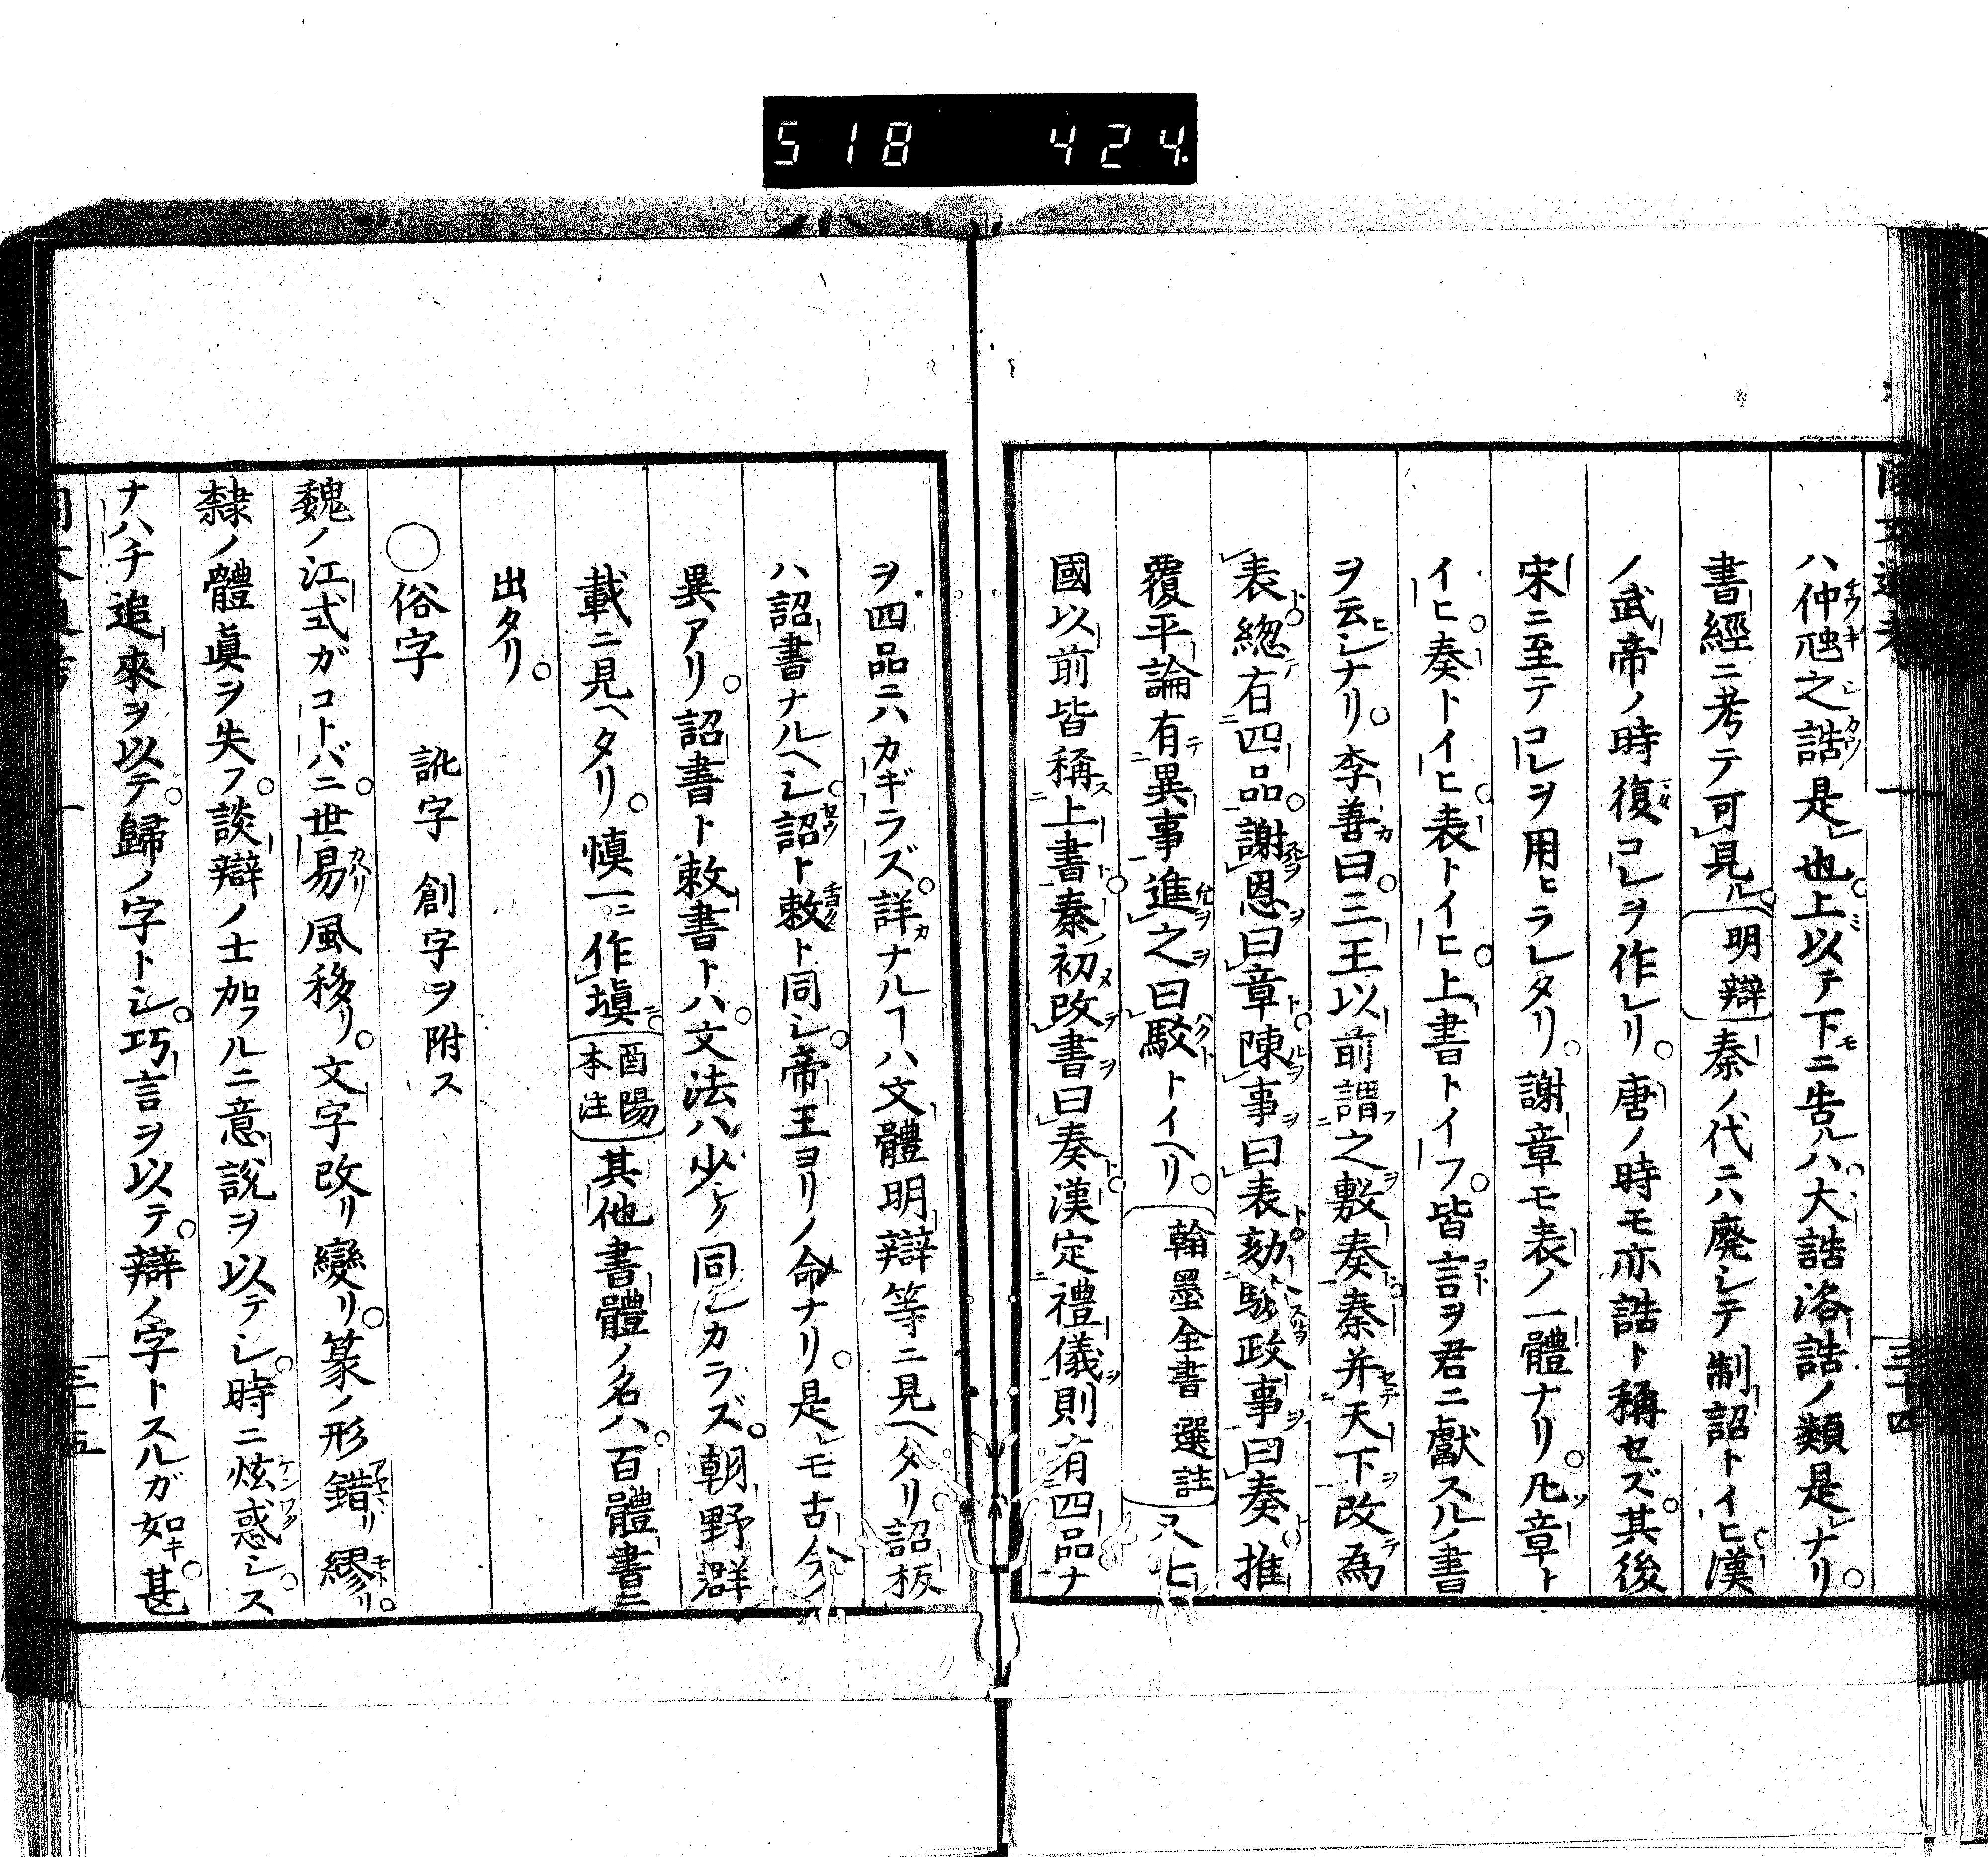 518 424.
ハ仲虺之誥是也上以テ下ニ告ルハ大誥洛誥ノ類是ナリ。
書經ニ考テ可見ル。明辯秦ノ代ニハ廃レテ制詔トイヒ漢
ノ武帝ノ時復コレヲ作レリ。唐ノ時モ亦誥ト稱セズ。其後
宋ニ至テコレヲ用ヒラレタリ。謝章モ表ノ一體ナリ。凡章ト
イヒ。奏トイヒ。表トイヒ。上書トイフ。皆言ヲ君ニ獻スルノ書
ヲ云シナリ。李善曰。三王以前謂之敷奏秦并天下改為
表。総有四品。謝恩曰章。陳事曰表。劾驗政事曰奏。推
覆平論有異事進之曰駁トイヘリ。翰墨全書 選註又七
國以前皆稱上書。秦初改書曰奏。漢定禮儀則有四品ナ
ヲ四品ニハカギラズ。詳ナルヿハ文體明辯等ニ見ヘタリ詔板
ハ詔書ナルヘシ。詔ト敕ト同シ。帝王ヨリノ命ナリ。是モ古今ノ
異アリ。詔書ト敕書トハ。文法ハ少シク同シカラズ。朝野群
載ニ見ヘタリ。愼一ニ作塡。酉陽本注其他書體ノ名ハ。百體書ニ
出タリ。
○俗字 訛字 創字ヲ附ス
魏ノ江式ガコトバニ。世易風移リ。文字改リ變リ。篆ノ形錯リ繆リ。
隸ノ體眞ヲ失フ。談辯ノ士加フルニ意說ヲ以テシ。時ニ炫惑シス。
ナハチ追來ヲ以テ。歸ノ字トシ。巧言ヲ以テ。辯ノ字トスルガ如キ。甚